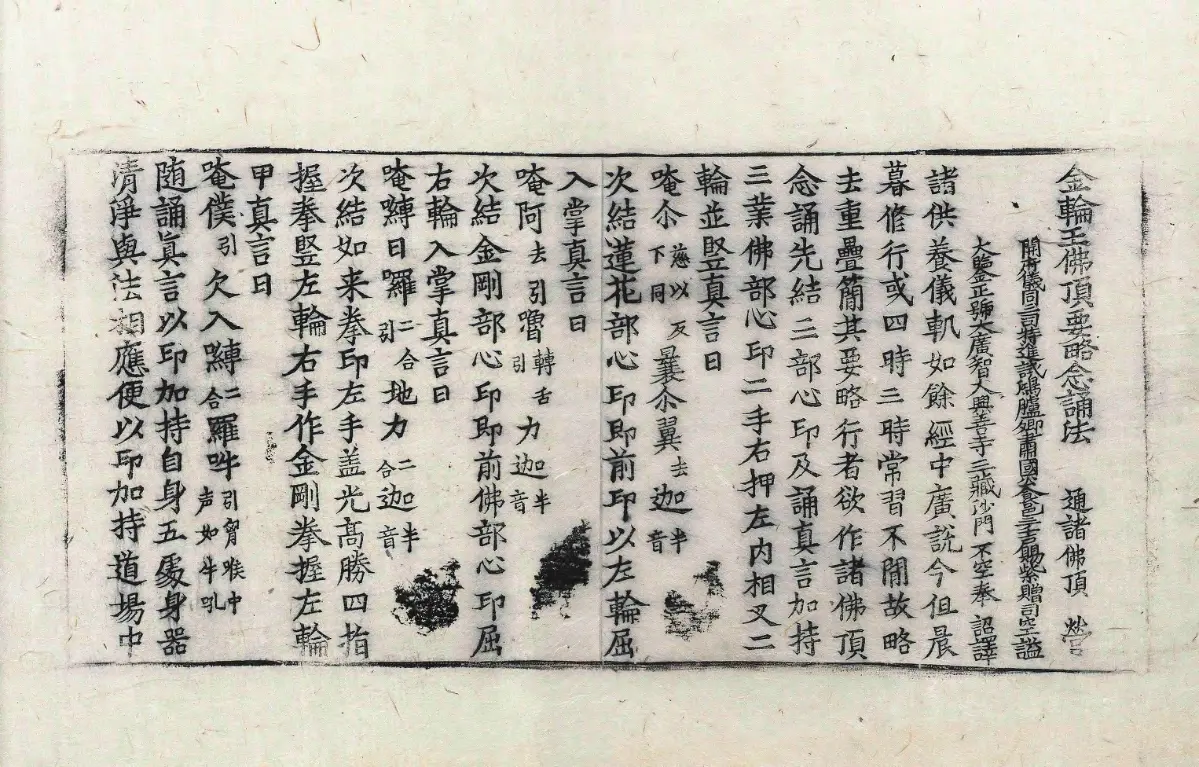 金輪王佛頂要略念誦法 通諸佛頂 營
開府儀同三司特進試鴻臚卿肅國公食邑三千戶賜紫贈司空謚
大鑒正號大廣智大興善寺三藏沙門不空奉 詔譯
諸供養儀軌如餘經中廣說今但晨
暮修行或四時三時常習不閒故略
去重疊簡其要略行者欲作諸佛頂
念誦先結三部心印及誦真言加持
三業佛部心印二手右押左內相叉二
輪並竪真言曰
唵尒慈以反下同曩尒翼去迦半音
次結蓮花部心印即前印以左輪屈
入掌真言曰
唵阿去引嚕轉舌引力迦半音
次結金剛部心印即前佛部心印屈
右輪入掌真言曰
唵嚩日羅二合引地力二合迦半音
次結如来拳印左手盖光高勝四指
握拳竪左輪右手作金剛拳握左輪
甲真言曰
唵僕引欠入嚩二合羅吽引胷喉中声如牛吼
随誦真言以印加持自身五處身器
清淨與法相應便以印加持道場中